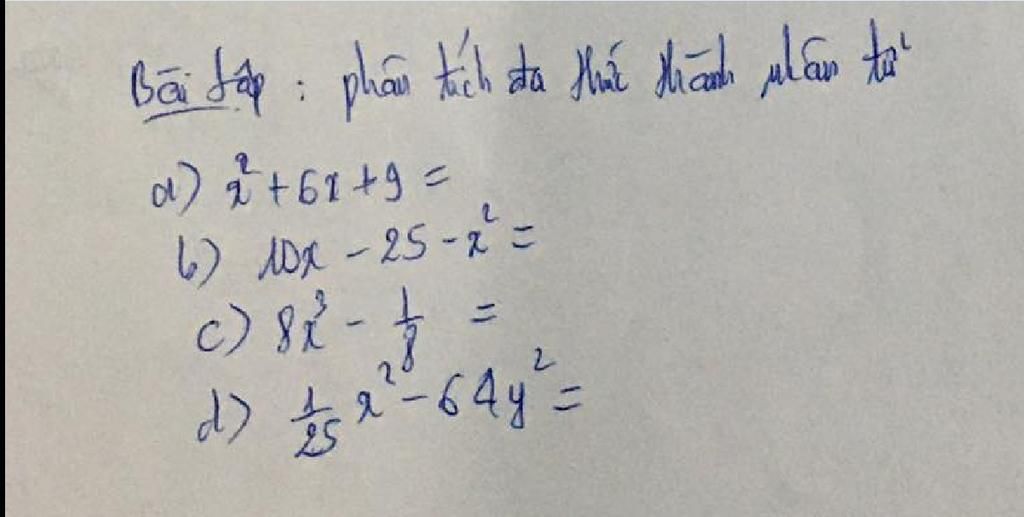 Bài tập : phân tích đa thức thành nhân tử
a) x² + 6x + 9 =
b) 10x - 25 - x² =
c) 8x³ - 1/8 =
d) 1/25 x² - 64y² =